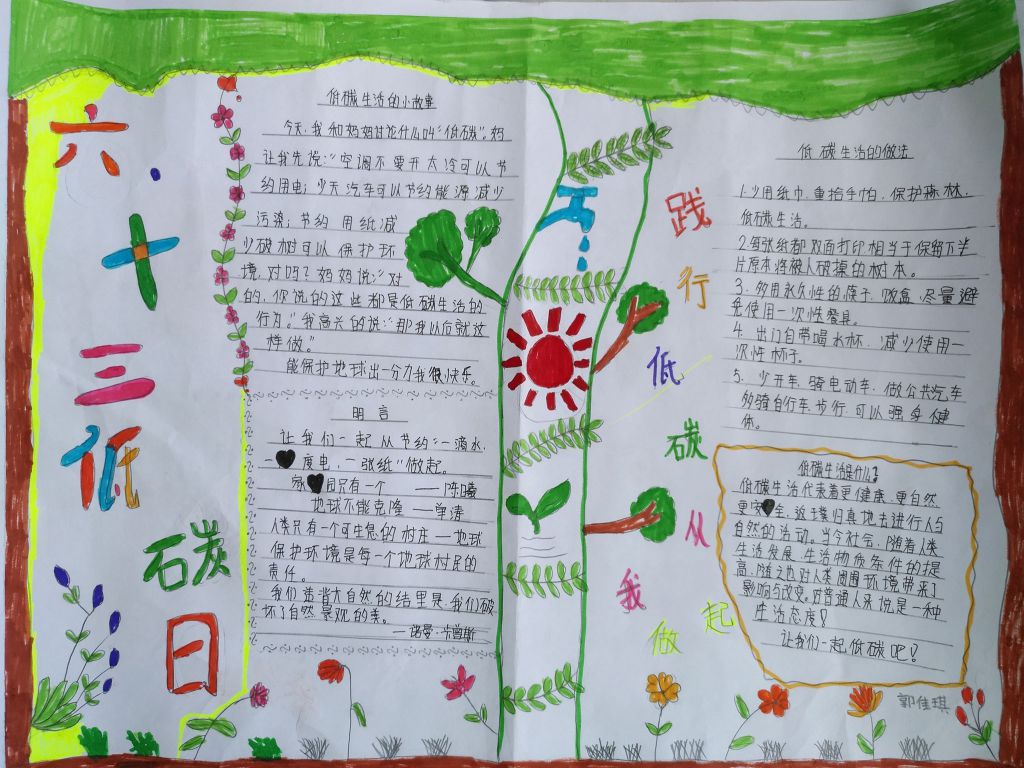 六十三低碳日
低碳生活的小故事
今天,我和妈妈讨论什么叫"低碳"。妈
让我先说:"空调不要开太冷可以节
约用电;少天汽车可以节约能源减少
污染;节约 用纸减
少砍树可以保护环
境,对吗?妈妈说:"对
的,你说的这些都是低碳生活的
行为。"我高兴的说:"那我以后就这
样做。"
能保护地球出一分力我很快乐。
明言
让我们一起从节约:一滴水,
一度电,一张纸"做起。
家园只有一个 ——陈曦
地球不能克隆 ——单涛
人类只有一个可生息的村庄——地球
保护环境是每一个地球村民的
责任。
我们造消大自然的结里是,我们破
坏了自然景观的美。
——诺曼·卡曾斯
践行低碳从我做起
低碳生活的做法
1.少用纸巾,重拾手帕,保护森林,
低碳生活。
2.每张纸都双面打印相当于保留下半
片原本将被人破操的树木。
3、多用永久性的筷子、饭盒,尽量避
免使用一次性餐具。
4、出门自带喝水杯,减少使用一
次性杯子。
5、少开车,骑电动车,做公共汽车
多骑自行车,步行,可以强身健
体。
低碳生活是什么?
低碳生活代表着更健康、更自然
更安全,返于璞归真地去进行人与
自然的活动。当今社会,随着人类
生活发展,生活物质条件的提
高,随之也对人类周围环境带来了
影响与改变。对普通人来说是一种
生活态度!
让我们一起低碳吧!
郭佳琪